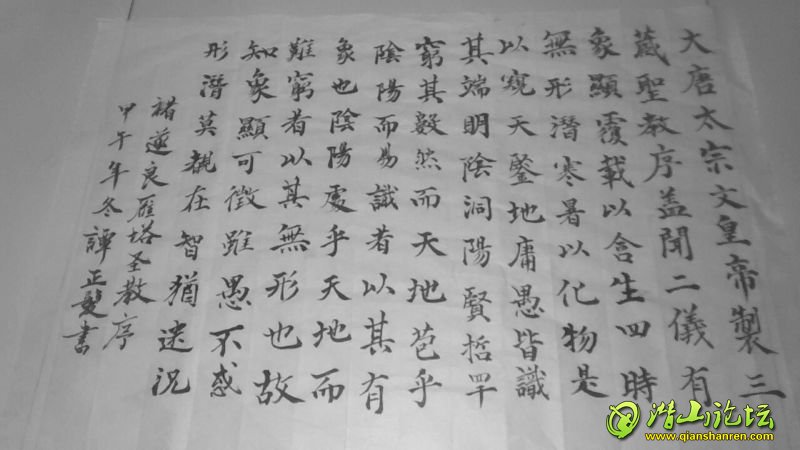 大唐太宗文皇帝製三
藏聖教序盖聞二儀有
象顯覆載以含生四時
無形潛寒暑以化物是
以窺天鑒地庸愚皆識
其端明陰洞陽賢哲罕
窮其數然而天地苞乎
陰陽而易識者以其有
象也陰陽處乎天地而
難窮者以其無形也故
知象顯可徵雖愚不惑
形潛莫覩在智猶迷況
褚遂良雁塔圣教序
甲午年冬譚正書
潜山论坛
www.qianshanren.com